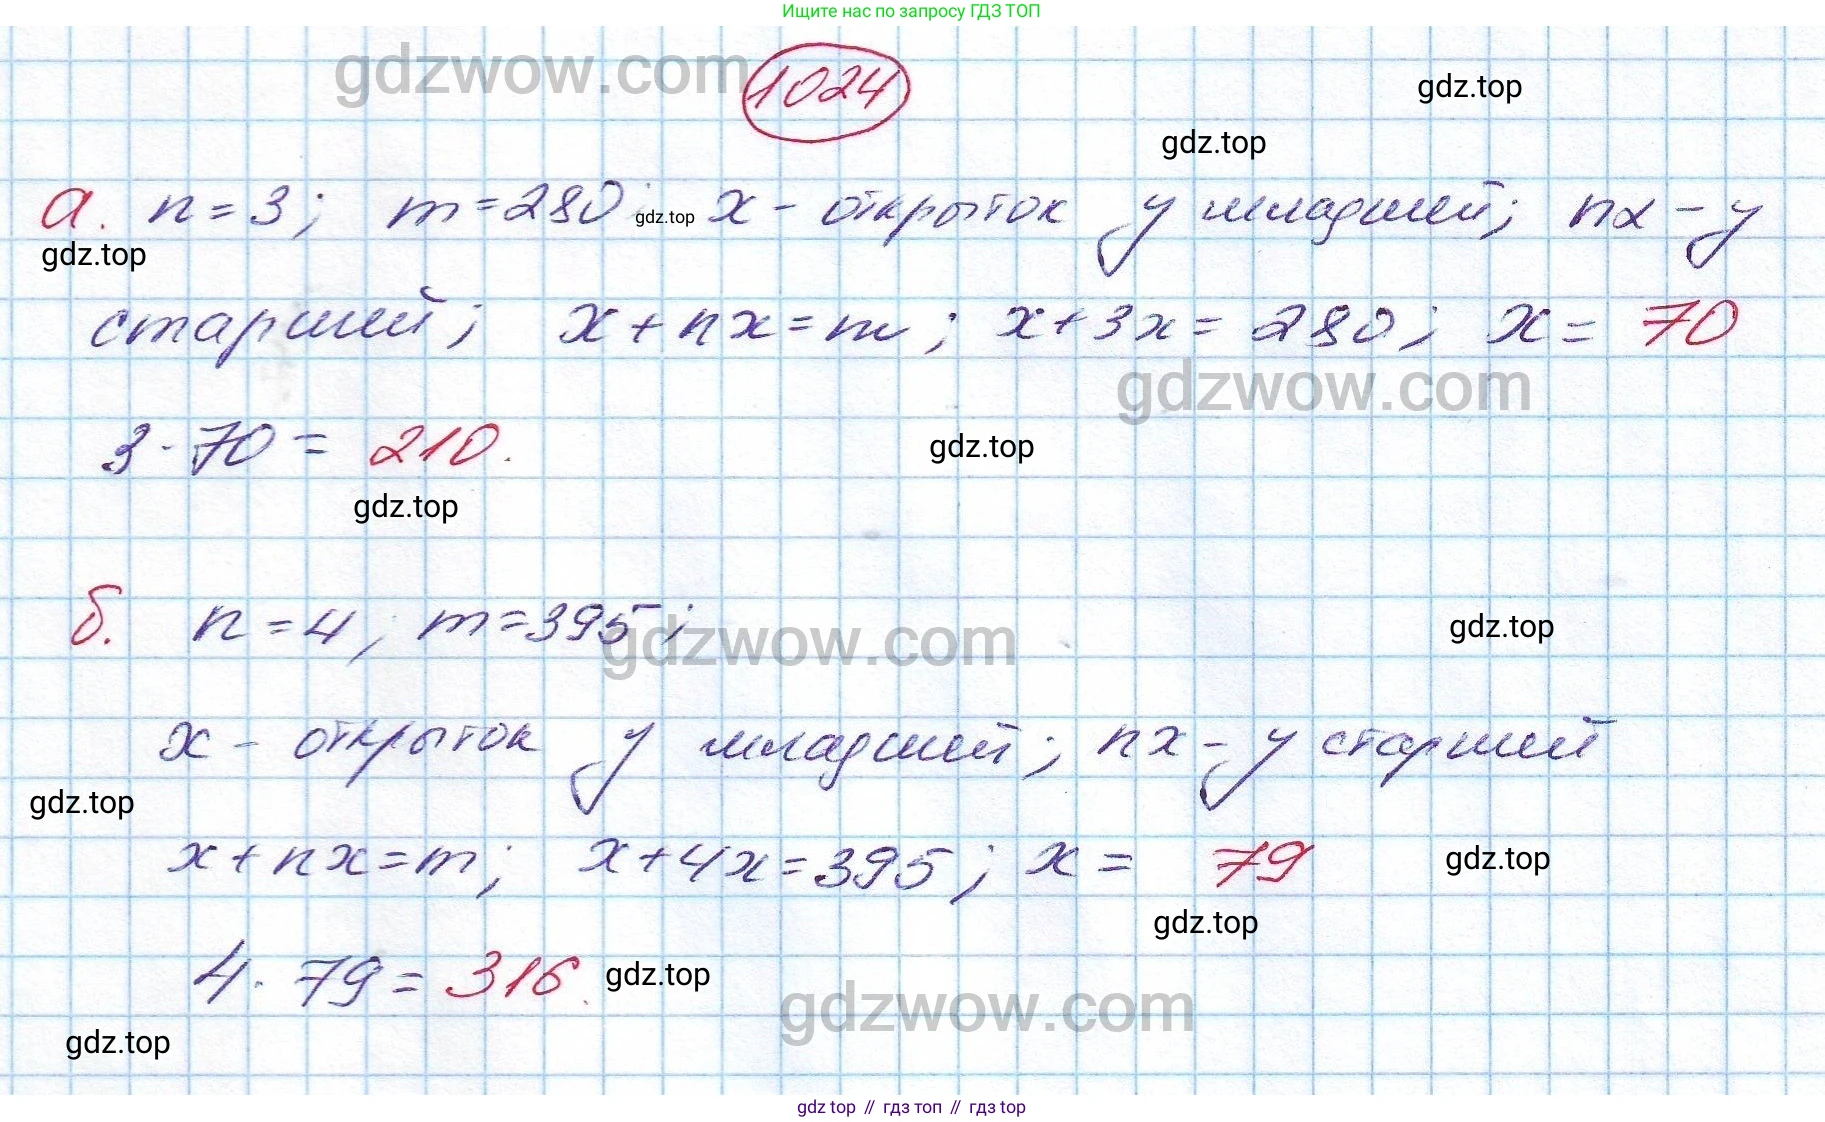 Ищите нас по запросу ГДЗ ТОП
gdzwow.com
1024
gdz.top
gdz.top
а. n=3; m=280; x - открыток у младшей; nx - у
gdz.top
gdz.top
старшей; x+nx=m; x+3x=280; x= 70
gdzwow.com
3·70= 210.
gdz.top
gdz.top
б. n=4, m=395;
gdzwow.com
gdz.top
x - открыток у младшей; nx - у старшей
gdz.top
x+nx=m; x+4x=395; x= 79
gdz.top
gdz.top
4·79= 316.
gdz.top
gdzwow.com
gdz.top
gdz top // гдз топ // gdz top